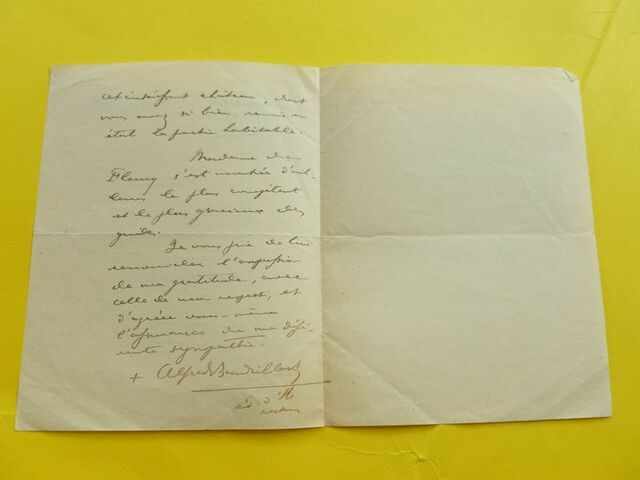 cet intéressant château, dont
vous avez si bien remis en
état la partie habitable.
Madame de
Fleury s'est montrée d'ail-
leurs le plus compétent
et le plus gracieux des
guides.
Je vous prie de lui
renouveler l'expression
de ma gratitude, avec
celle de mon respect, et
d'agréer vous-même
l'assurance de ma défé-
rente sympathie.
+ Alfred Baudrillart
év. d'H